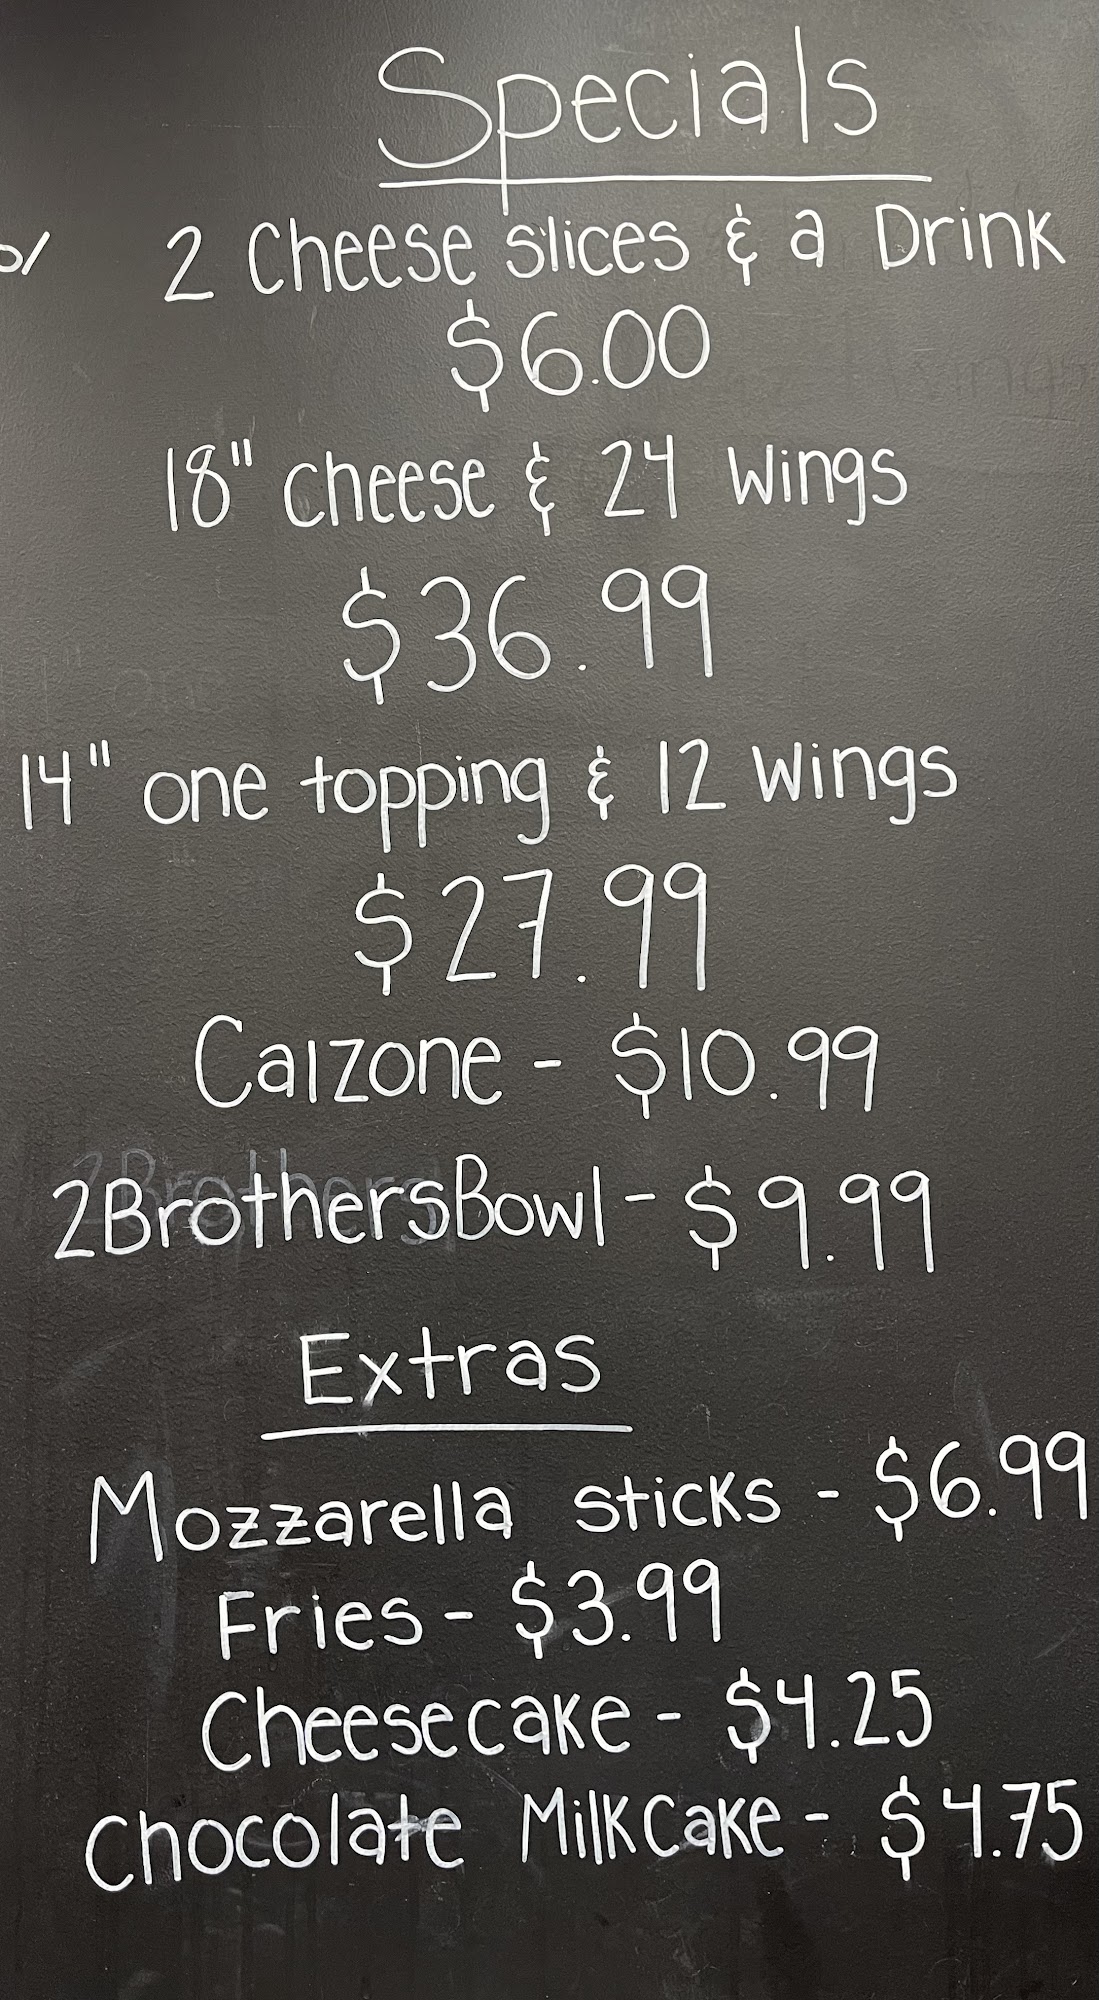 Specials
2 Cheese slices & a Drink
$6.00
18" cheese & 24 wings
$36.99
14" one topping & 12 wings
$27.99
Calzone - $10.99
2BrothersBowl - $9.99
Extras
Mozzarella sticks - $6.99
Fries - $3.99
Cheesecake - $4.25
Chocolate MilkCake - $4.75